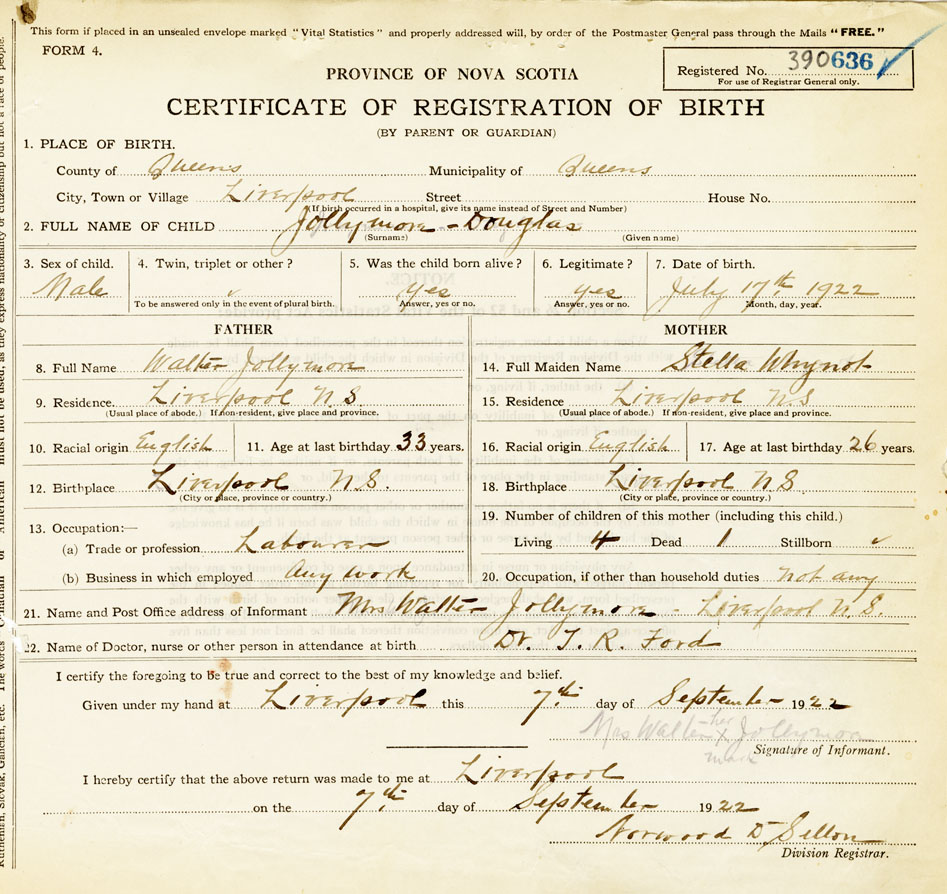 This form if placed in an unsealed envelope marked "Vital Statistics" and properly addressed will, by order of the Postmaster General pass through the Mails "FREE."
FORM 4.
Registered No. 390636
For use of Registrar General only.
PROVINCE OF NOVA SCOTIA
CERTIFICATE OF REGISTRATION OF BIRTH
(BY PARENT OR GUARDIAN)
1. PLACE OF BIRTH.
County of Queens Municipality of Queens
City, Town or Village Liverpool Street House No.
(If birth occurred in a hospital, give its name instead of Street and Number)
2. FULL NAME OF CHILD Jollymore - Douglas
(Surname) (Given name)
3. Sex of child. 4. Twin, triplet or other? 5. Was the child born alive? 6. Legitimate? 7. Date of birth.
Male yes yes July 17th 1922
To be answered only in the event of plural birth. Answer, yes or no. Answer, yes or no. Month, day, year.
FATHER MOTHER
8. Full Name Walter Jollymore 14. Full Maiden Name Stella Whynot
9. Residence. Liverpool N S 15. Residence Liverpool N.S
(Usual place of abode.) If non-resident, give place and province. (Usual place of abode.) If non-resident, give place and province.
10. Racial origin English 11. Age at last birthday 33 years. 16. Racial origin English 17. Age at last birthday 26 years.
12. Birthplace Liverpool N.S. 18. Birthplace Liverpool N.S.
(City or place, province or country.) (City or place, province or country.)
13. Occupation:— 19. Number of children of this mother (including this child.)
(a) Trade or profession Labourer Living 4 Dead 1 Stillborn
(b) Business in which employed Any work 20. Occupation, if other than household duties not any
21. Name and Post Office address of Informant Mrs Walter Jollymore - Liverpool N.S.
22. Name of Doctor, nurse or other person in attendance at birth Dr. T. R. Ford
I certify the foregoing to be true and correct to the best of my knowledge and belief.
Given under my hand at Liverpool this 7th day of September 1922
Mrs Walter her X mark Jollymore
Signature of Informant.
I hereby certify that the above return was made to me at Liverpool
on the 7th day of September 1922
Norwood D Sellon
Division Registrar.